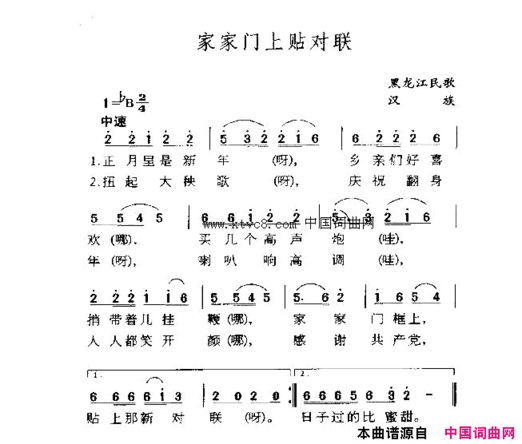 家家门上贴对联
黑龙江民歌
汉 族
1=♭B 2/4
中速
2 2 1 2 2 5 3 2 2 1 6 6 2 2 2 6
1.正 月里是 新 年 (呀), 乡 亲们好 喜
2.扭 起 大 秧 歌 (呀), 庆 祝 翻 身
5 5 4 5
www.ktvc8.com 中国词曲网
欢(哪)、 买 几 个 高 声 炮 (哇),
年(呀), 喇 叭 响 高 调 (哇),
捎 带着 儿 挂 鞭(哪), 家 家 门 框上,
人 人都 笑 开 颜(哪), 感 谢 共 产 党,
1. 2.
6 6 6 6 1 3 2 0 2 0 6 6 6 5 6 5 3 5
贴 上那新 对 联 (呀)。 日子过的比 蜜甜。
本曲谱源自 中国词曲网